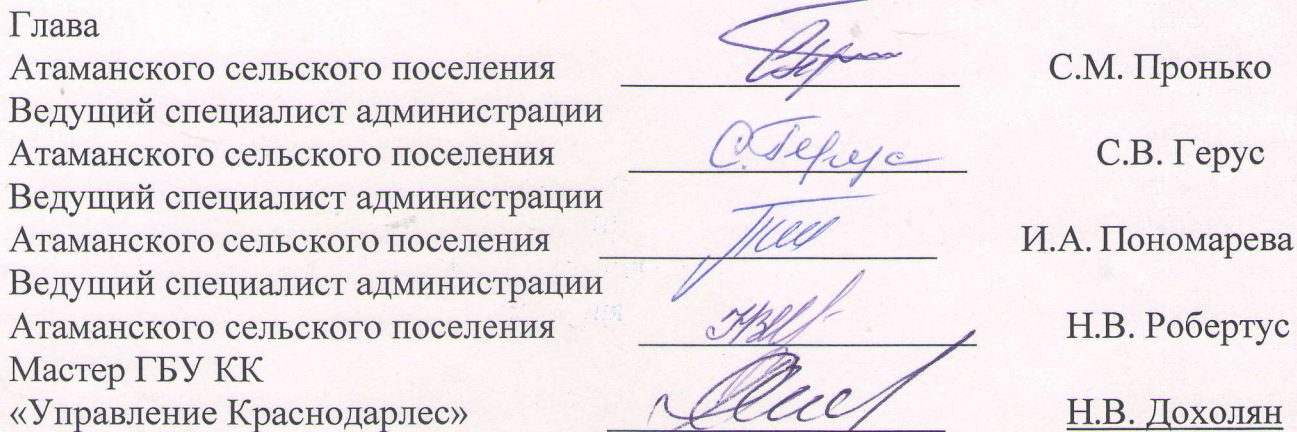 Глава
Атаманского сельского поселения С.М. Пронько
Ведущий специалист администрации
Атаманского сельского поселения С. Герус С.В. Герус
Ведущий специалист администрации
Атаманского сельского поселения И.А. Пономарева
Ведущий специалист администрации
Атаманского сельского поселения Н.В. Робертус
Мастер ГБУ КК
«Управление Краснодарлес» Н.В. Дохолян